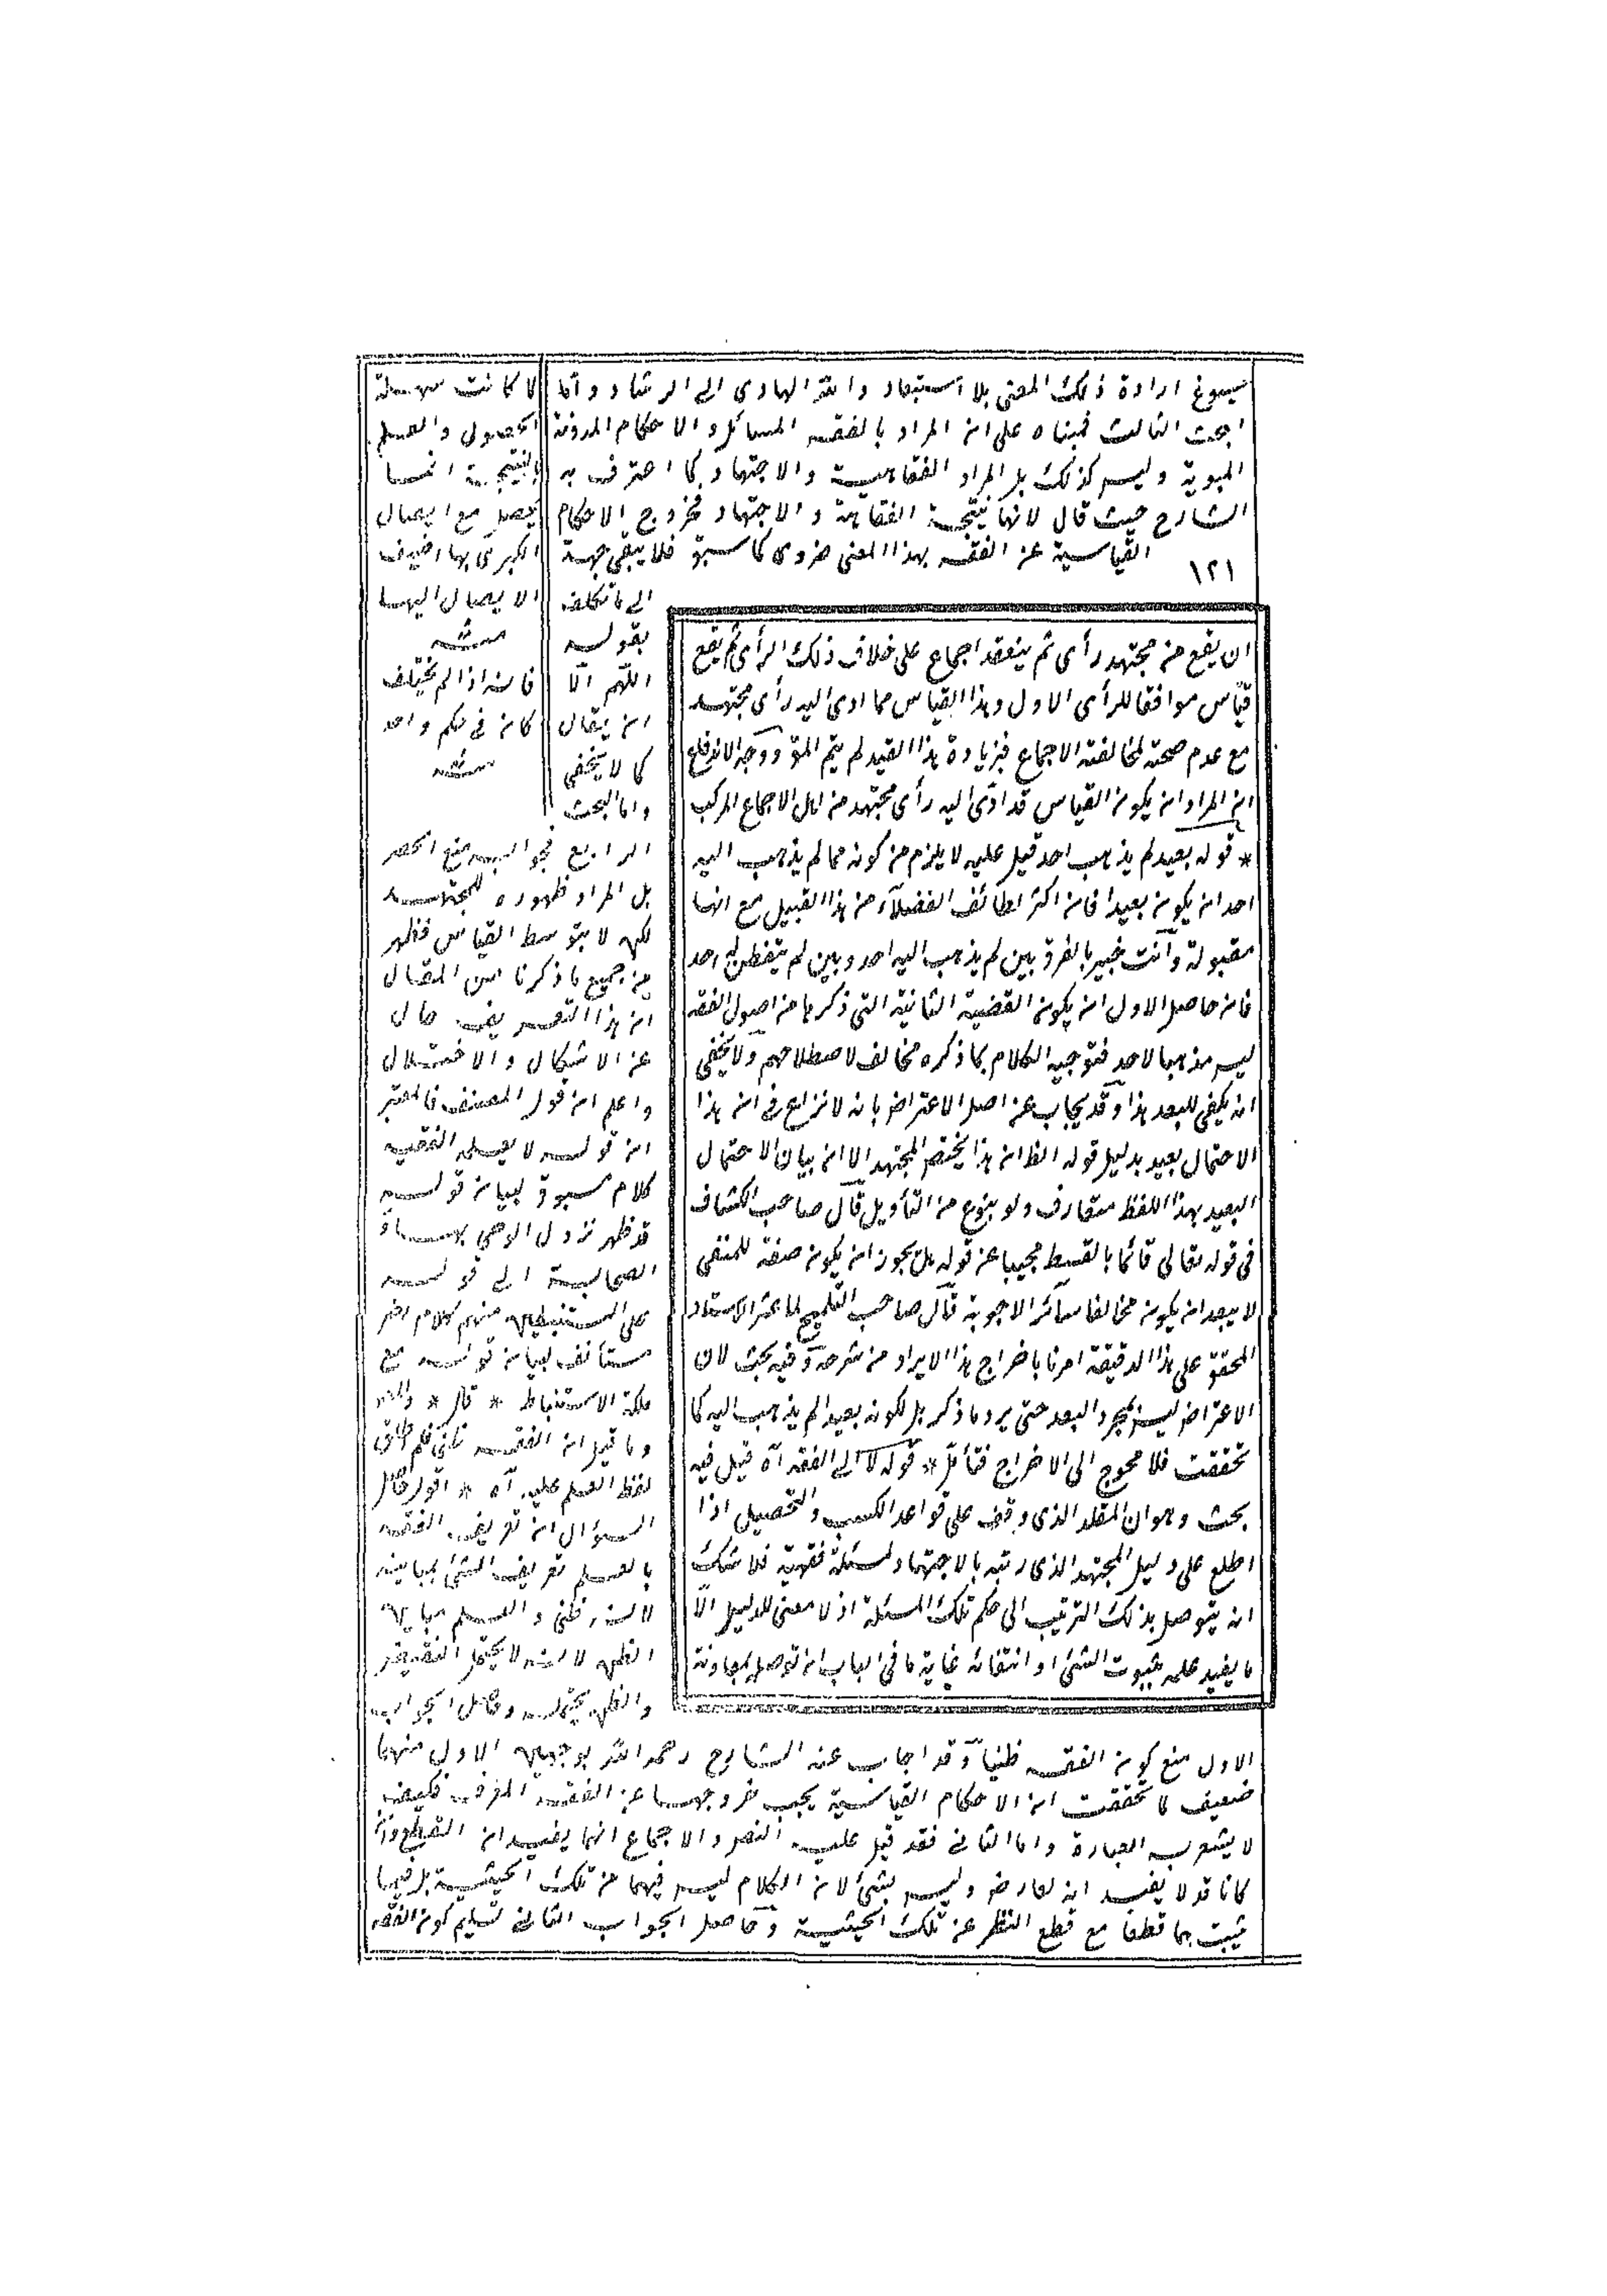 سيسوغ ارادة ذلك المعنى بلا استبعاد والله الهادى الى الرشاد واما
البحث الثالث فمبناه على ان المراد بالفقه المسائل والاحكام المدونة
المبوبة وليس كذلك بل المراد الفقاهية والاجتهاد كما اعترف به
الشارح حيث قال لانها نتيجة الفقاهة والاجتهاد فخروج الاحكام
القياسية عن الفقه بهذا المعنى ضرورى كما سبق فلا يبقى جهة
١٢١
الى ما تكلف
بقوله
اللهم الا
ان يقال
كما لا يخفى
واما البحث
الرابع فجوابه منع الحصر
بل المراد ظهوره للمجتهد
لكن لا بتوسط القياس فظهر
من جميع ما ذكرنا من المقال
ان هذا التعريف خال
عن الاشكال والاختلال
واعلم ان قول المصنف فالمعتبر
ان قوله لا يعلمه الفقيه
كلام مسبوق لبيان قوله
قد ظهر نزول الوحى به
الصحابة الى قوله
على المستنبطين منهم كلام اخر
مستأنف لبيان قوله مع
ملكة الاستنباط * قال *
وما قيل ان الفقه ظنى فلم اطلق
لفظ العلم عليه آه * اقول حاصل
السؤال ان تعريف الفقه
بالعلم تعريف الشئ بمباينه
لانه ظنى والعلم مباين
الظن لانه لا يحتمل النقيض
والظن يحتمله وحاصل الجواب
الاول منع كون الفقه ظنيا وقد اجاب عنه الشارح رحمه الله بوجهين الاول منهما
ضعيف لما تحققت ان الاحكام القياسية يجب خروجها عن الفقه المعرف فكيف
لا يشعر به العبارة واما الثانى فقد قيل عليه النص والاجماع انما يفيدان القطع
كانا قد لا يفيد انه لعارض وليس بشئ لان الكلام ليس فيهما من تلك الحيثية بل فيما
يثبت بهما قطعا مع قطع النظر عن تلك الحيثية وحاصل الجواب الثانى تسليم كون الفقه
لما كانت سهلة
الحصول والعلم
بالنتيجة انما
يحصل مع ايصال
الكبرى بها اضيف
الايصال اليها
منه
فانه اذا لم يختلف
كان فى حكم واحد
منه
ان يقع من مجتهد رأى ثم ينعقد اجماع على خلاف ذلك الرأى ثم يقع
قياس موافقا للرأى الاول وهذا القياس مما ادى اليه رأى مجتهد
مع عدم صحته لمخالفته الاجماع فبزيادة هذا القيد لم يتم المق ووجه الاندفاع
ان المراد ان يكون القياس قد ادى اليه رأى مجتهد من اهل الاجماع المركب
* قوله بعيد لم يذهب احد قيل عليه لا يلزم من كونه مما لم يذهب اليه
احد ان يكون بعيدا فان اكثر لطائف الفضلاء من هذا القبيل مع انها
مقبولة وانت خبير بالفرق بين لم يذهب اليه احد وبين لم يتفطن له احد
فان حاصل الاول ان يكون القضية الثانية التى ذكرها من اصول الفقه
ليس مذهبا لاحد فتوجيه الكلام بما ذكره مخالف لاصطلاحهم ولا يخفى
انه يكفى للبعد هذا وقد يجاب عن اصل الاعتراض بانه لا نزاع فى ان هذا
الاحتمال بعيد بدليل قوله الظ ان هذا يختص المجتهد الا ان بيان الاحتمال
البعيد بهذا اللفظ متعارف ولو بنوع من التأويل قال صاحب الكشاف
فى قوله تعالى قائما بالقسط مجيبا عن قوله هل يجوز ان يكون صفة للمنفى
لا يبعد ان يكون مخالفا سائر الاجوبة قال صاحب التلميح لما عثر الاستاد
المحقق على هذا الدقيقة امرنا باخراج هذا الايراد من شرحه وفيه بحث لان
الاعتراض ليس بمجرد البعد حتى يرد ما ذكر بل لكونه بعيدا لم يذهب اليه كما
تحققت فلا محوج الى الاخراج فتأمل * قوله لا الى الفقه آه قيل فيه
بحث وهو ان المقلد الذى وقف على قواعد الكسب والتحصيل اذا
اطلع على دليل المجتهد الذى رتبه بالاجتهاد لمسئلة فقهية فلا شك
انه يتوصل بذلك الترتيب الى حكم تلك المسئلة اذ لا معنى للدليل الا
ما يفيد علمه بثبوت الشئ او انتفائه غاية ما فى الباب ان توصله بمعاونة